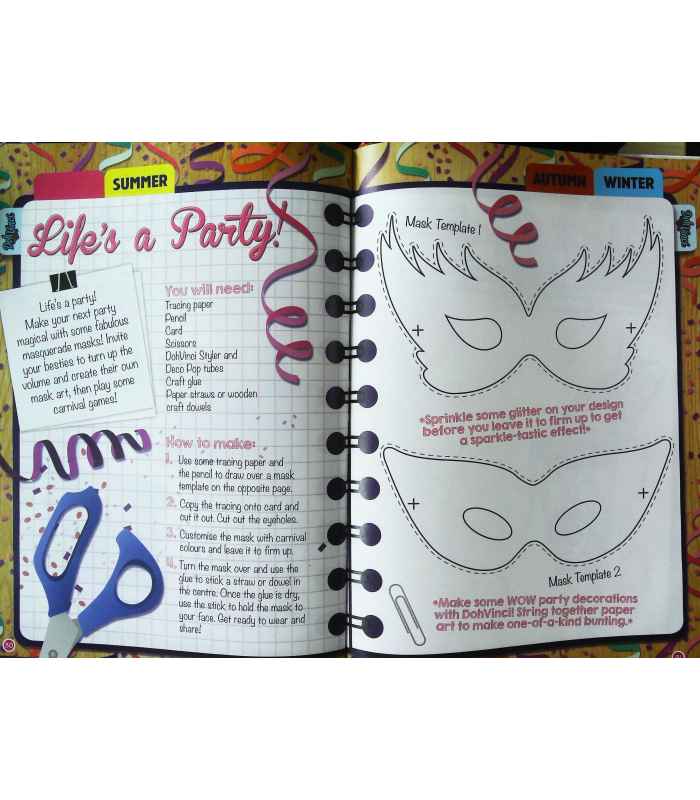 SUMMER
Life's a Party!
Life's a party!
Make your next party
magical with some fabulous
masquerade masks! Invite
your besties to turn up the
volume and create their own
mask art, then play some
carnival games!
You will need:
Tracing paper
Pencil
Card
Scissors
DohVinci Styler and
Deco Pop tubes
Craft glue
Paper straws or wooden
craft dowels
How to make:
1. Use some tracing paper and
the pencil to draw over a mask
template on the opposite page.
2. Copy the tracing onto card and
cut it out. Cut out the eyeholes.
3. Customise the mask with carnival
colours and leave it to firm up.
4. Turn the mask over and use the
glue to stick a straw or dowel in
the centre. Once the glue is dry,
use the stick to hold the mask to
your face. Get ready to wear and
share!
AUTUMN
WINTER
Mask Template 1
*Sprinkle some glitter on your design
before you leave it to firm up to get
a sparkle-tastic effect!*
Mask Template 2
*Make some WOW party decorations
with DohVinci! String together paper
art to make one-of-a-kind bunting.*